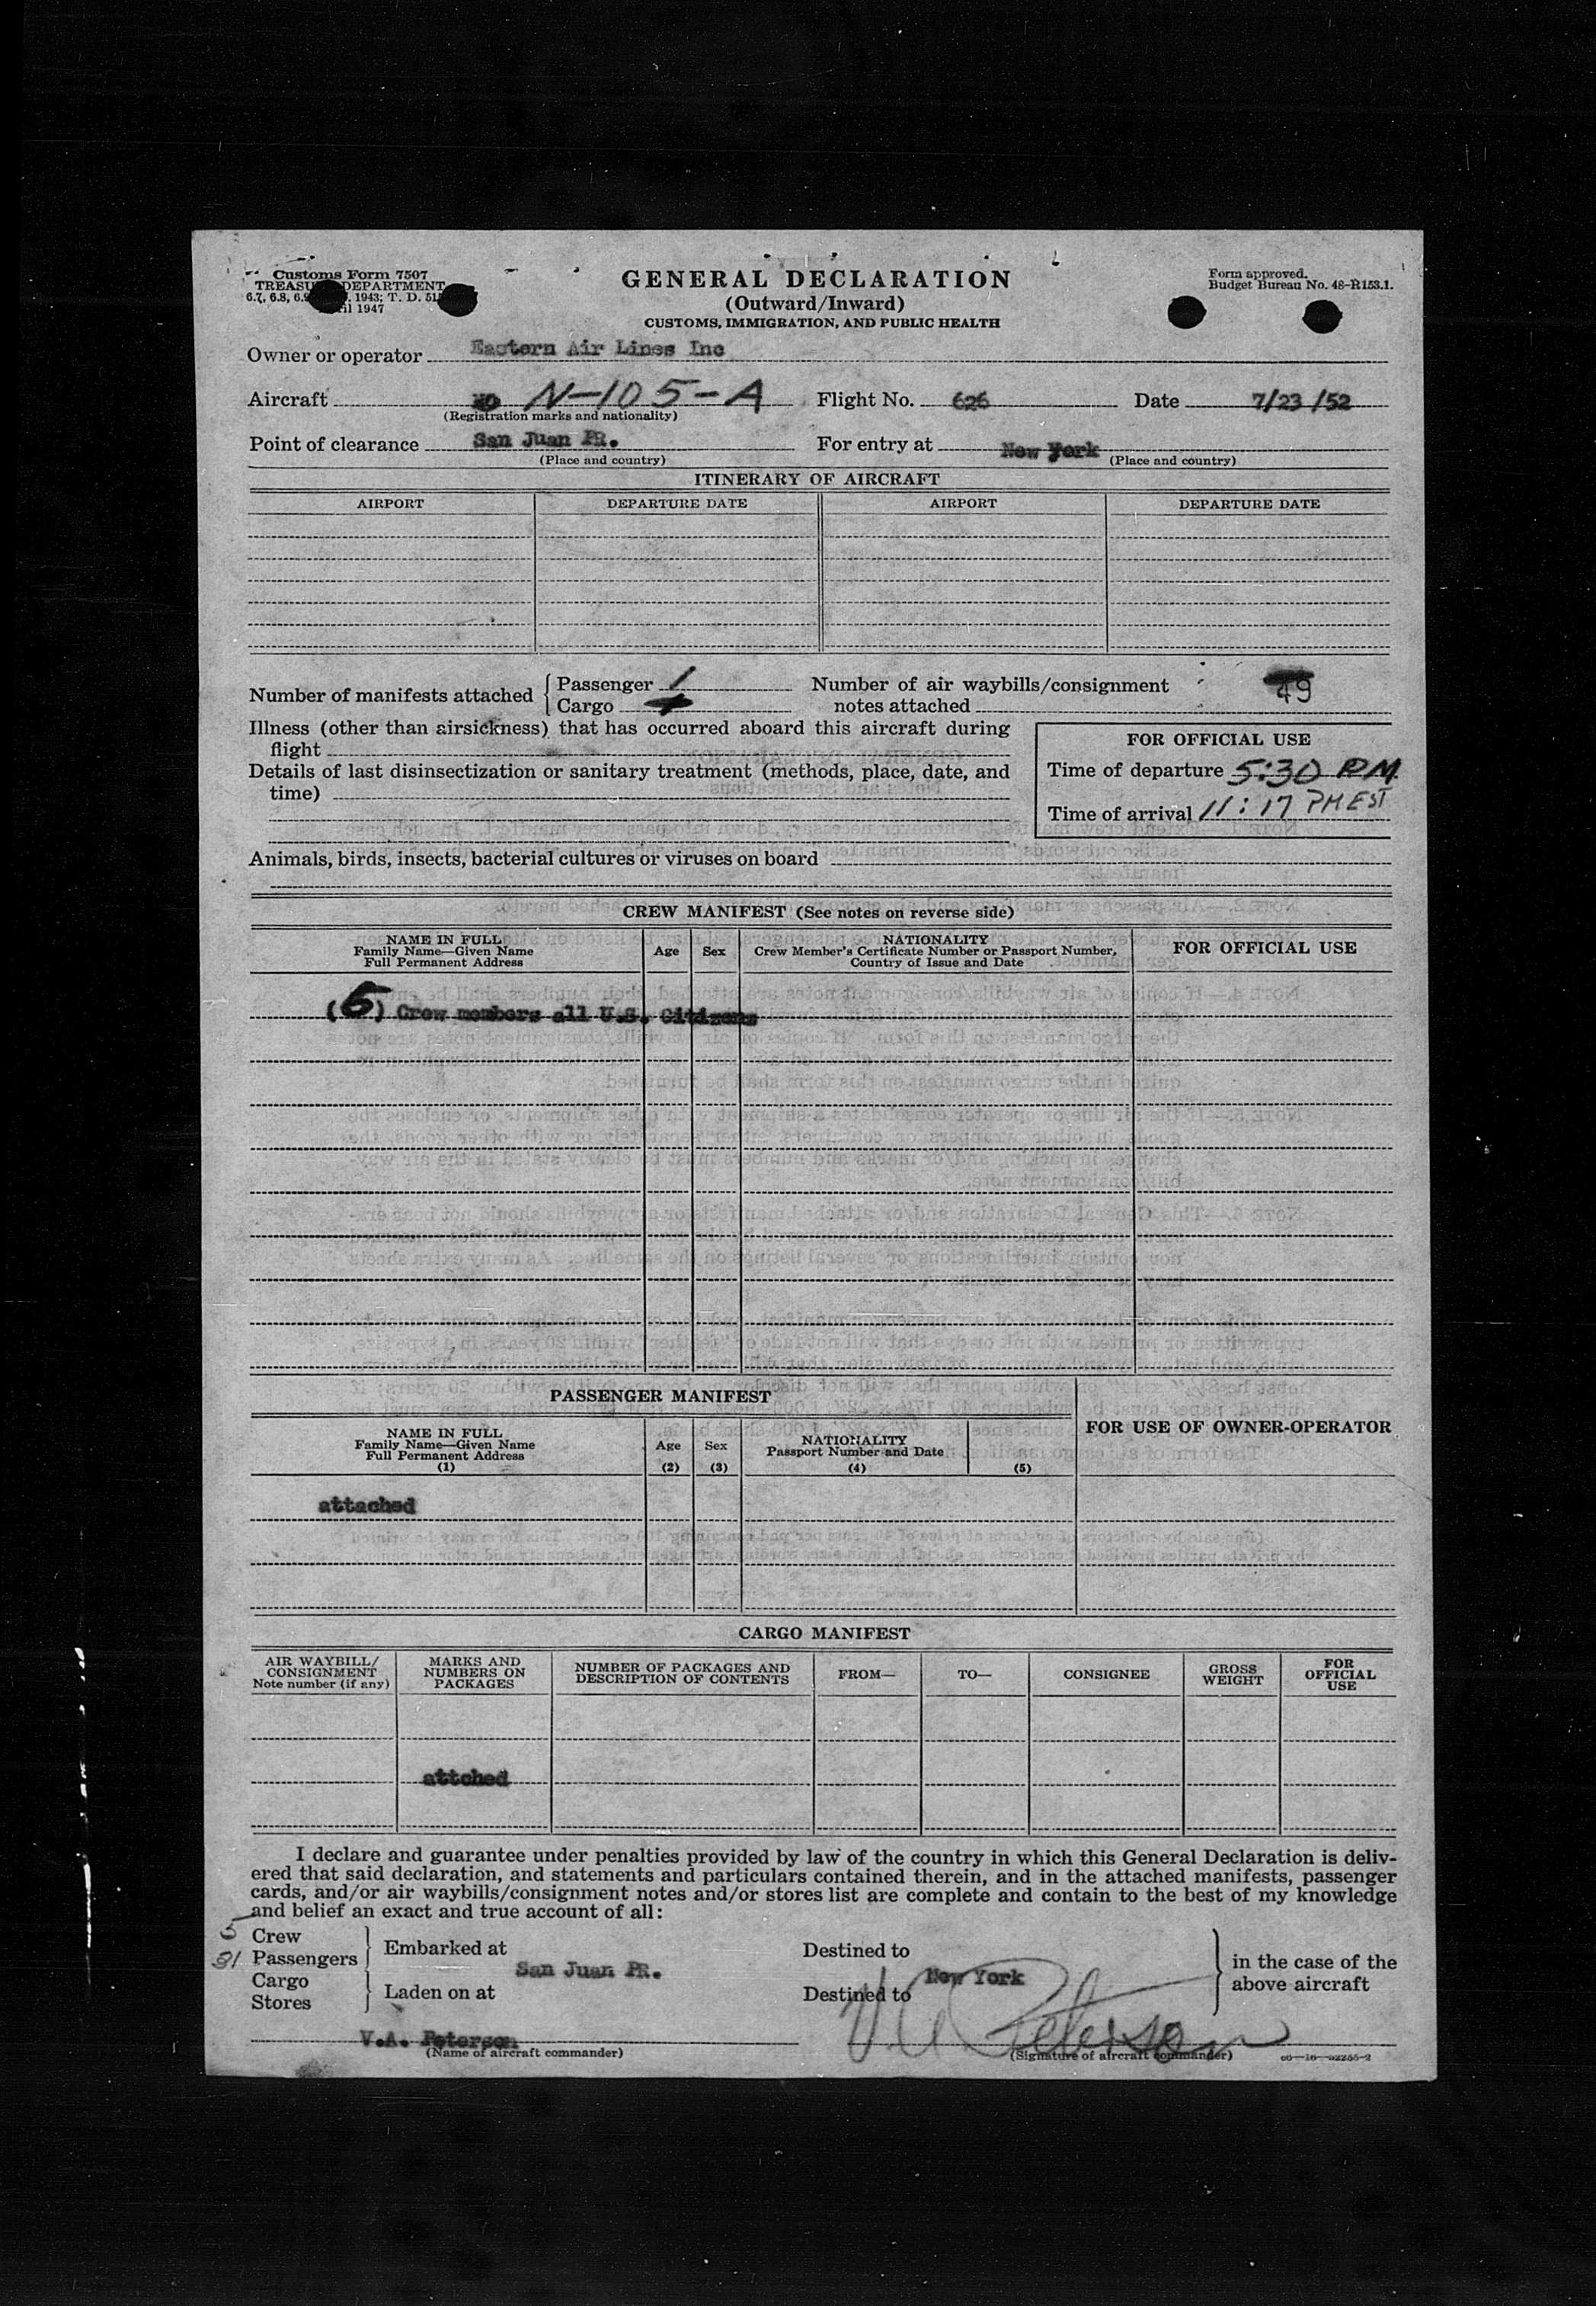 Customs Form 7507
TREASU DEPARTMENT
6.7, 6.8, 6.9 1943; T. D. 51
ril 1947
GENERAL DECLARATION
(Outward/Inward)
CUSTOMS, IMMIGRATION, AND PUBLIC HEALTH
Form approved.
Budget Bureau No. 48-R153.1.
Owner or operator Eastern Air Lines Inc
Aircraft N-105-A Flight No. 626 Date 7/23/52
(Registration marks and nationality)
Point of clearance San Juan PR. For entry at New York
(Place and country) (Place and country)
ITINERARY OF AIRCRAFT
AIRPORT DEPARTURE DATE AIRPORT DEPARTURE DATE
Number of manifests attached { Passenger 1
Cargo
Number of air waybills/consignment
notes attached 49
Illness (other than airsickness) that has occurred aboard this aircraft during
flight
Details of last disinsectization or sanitary treatment (methods, place, date, and
time)
FOR OFFICIAL USE
Time of departure 5:30 PM
Time of arrival 11:17 PM EST
Animals, birds, insects, bacterial cultures or viruses on board
CREW MANIFEST (See notes on reverse side)
NAME IN FULL
Family Name—Given Name
Full Permanent Address
Age
Sex
NATIONALITY
Crew Member's Certificate Number or Passport Number,
Country of Issue and Date
FOR OFFICIAL USE
(5) Crew members all U.S. Citizens
PASSENGER MANIFEST
FOR USE OF OWNER-OPERATOR
NAME IN FULL
Family Name—Given Name
Full Permanent Address
(1)
Age
(2)
Sex
(3)
NATIONALITY
Passport Number and Date
(4) (5)
attached
CARGO MANIFEST
AIR WAYBILL/
CONSIGNMENT
Note number (if any)
MARKS AND
NUMBERS ON
PACKAGES
NUMBER OF PACKAGES AND
DESCRIPTION OF CONTENTS
FROM—
TO—
CONSIGNEE
GROSS
WEIGHT
FOR
OFFICIAL
USE
attched
I declare and guarantee under penalties provided by law of the country in which this General Declaration is deliv-
ered that said declaration, and statements and particulars contained therein, and in the attached manifests, passenger
cards, and/or air waybills/consignment notes and/or stores list are complete and contain to the best of my knowledge
and belief an exact and true account of all:
5 Crew
81 Passengers
Cargo
Stores
Embarked at
San Juan PR.
Laden on at
Destined to
New York
Destined to
in the case of the
above aircraft
V.A. Peterson
(Name of aircraft commander)
V A Peterson
(Signature of aircraft commander)